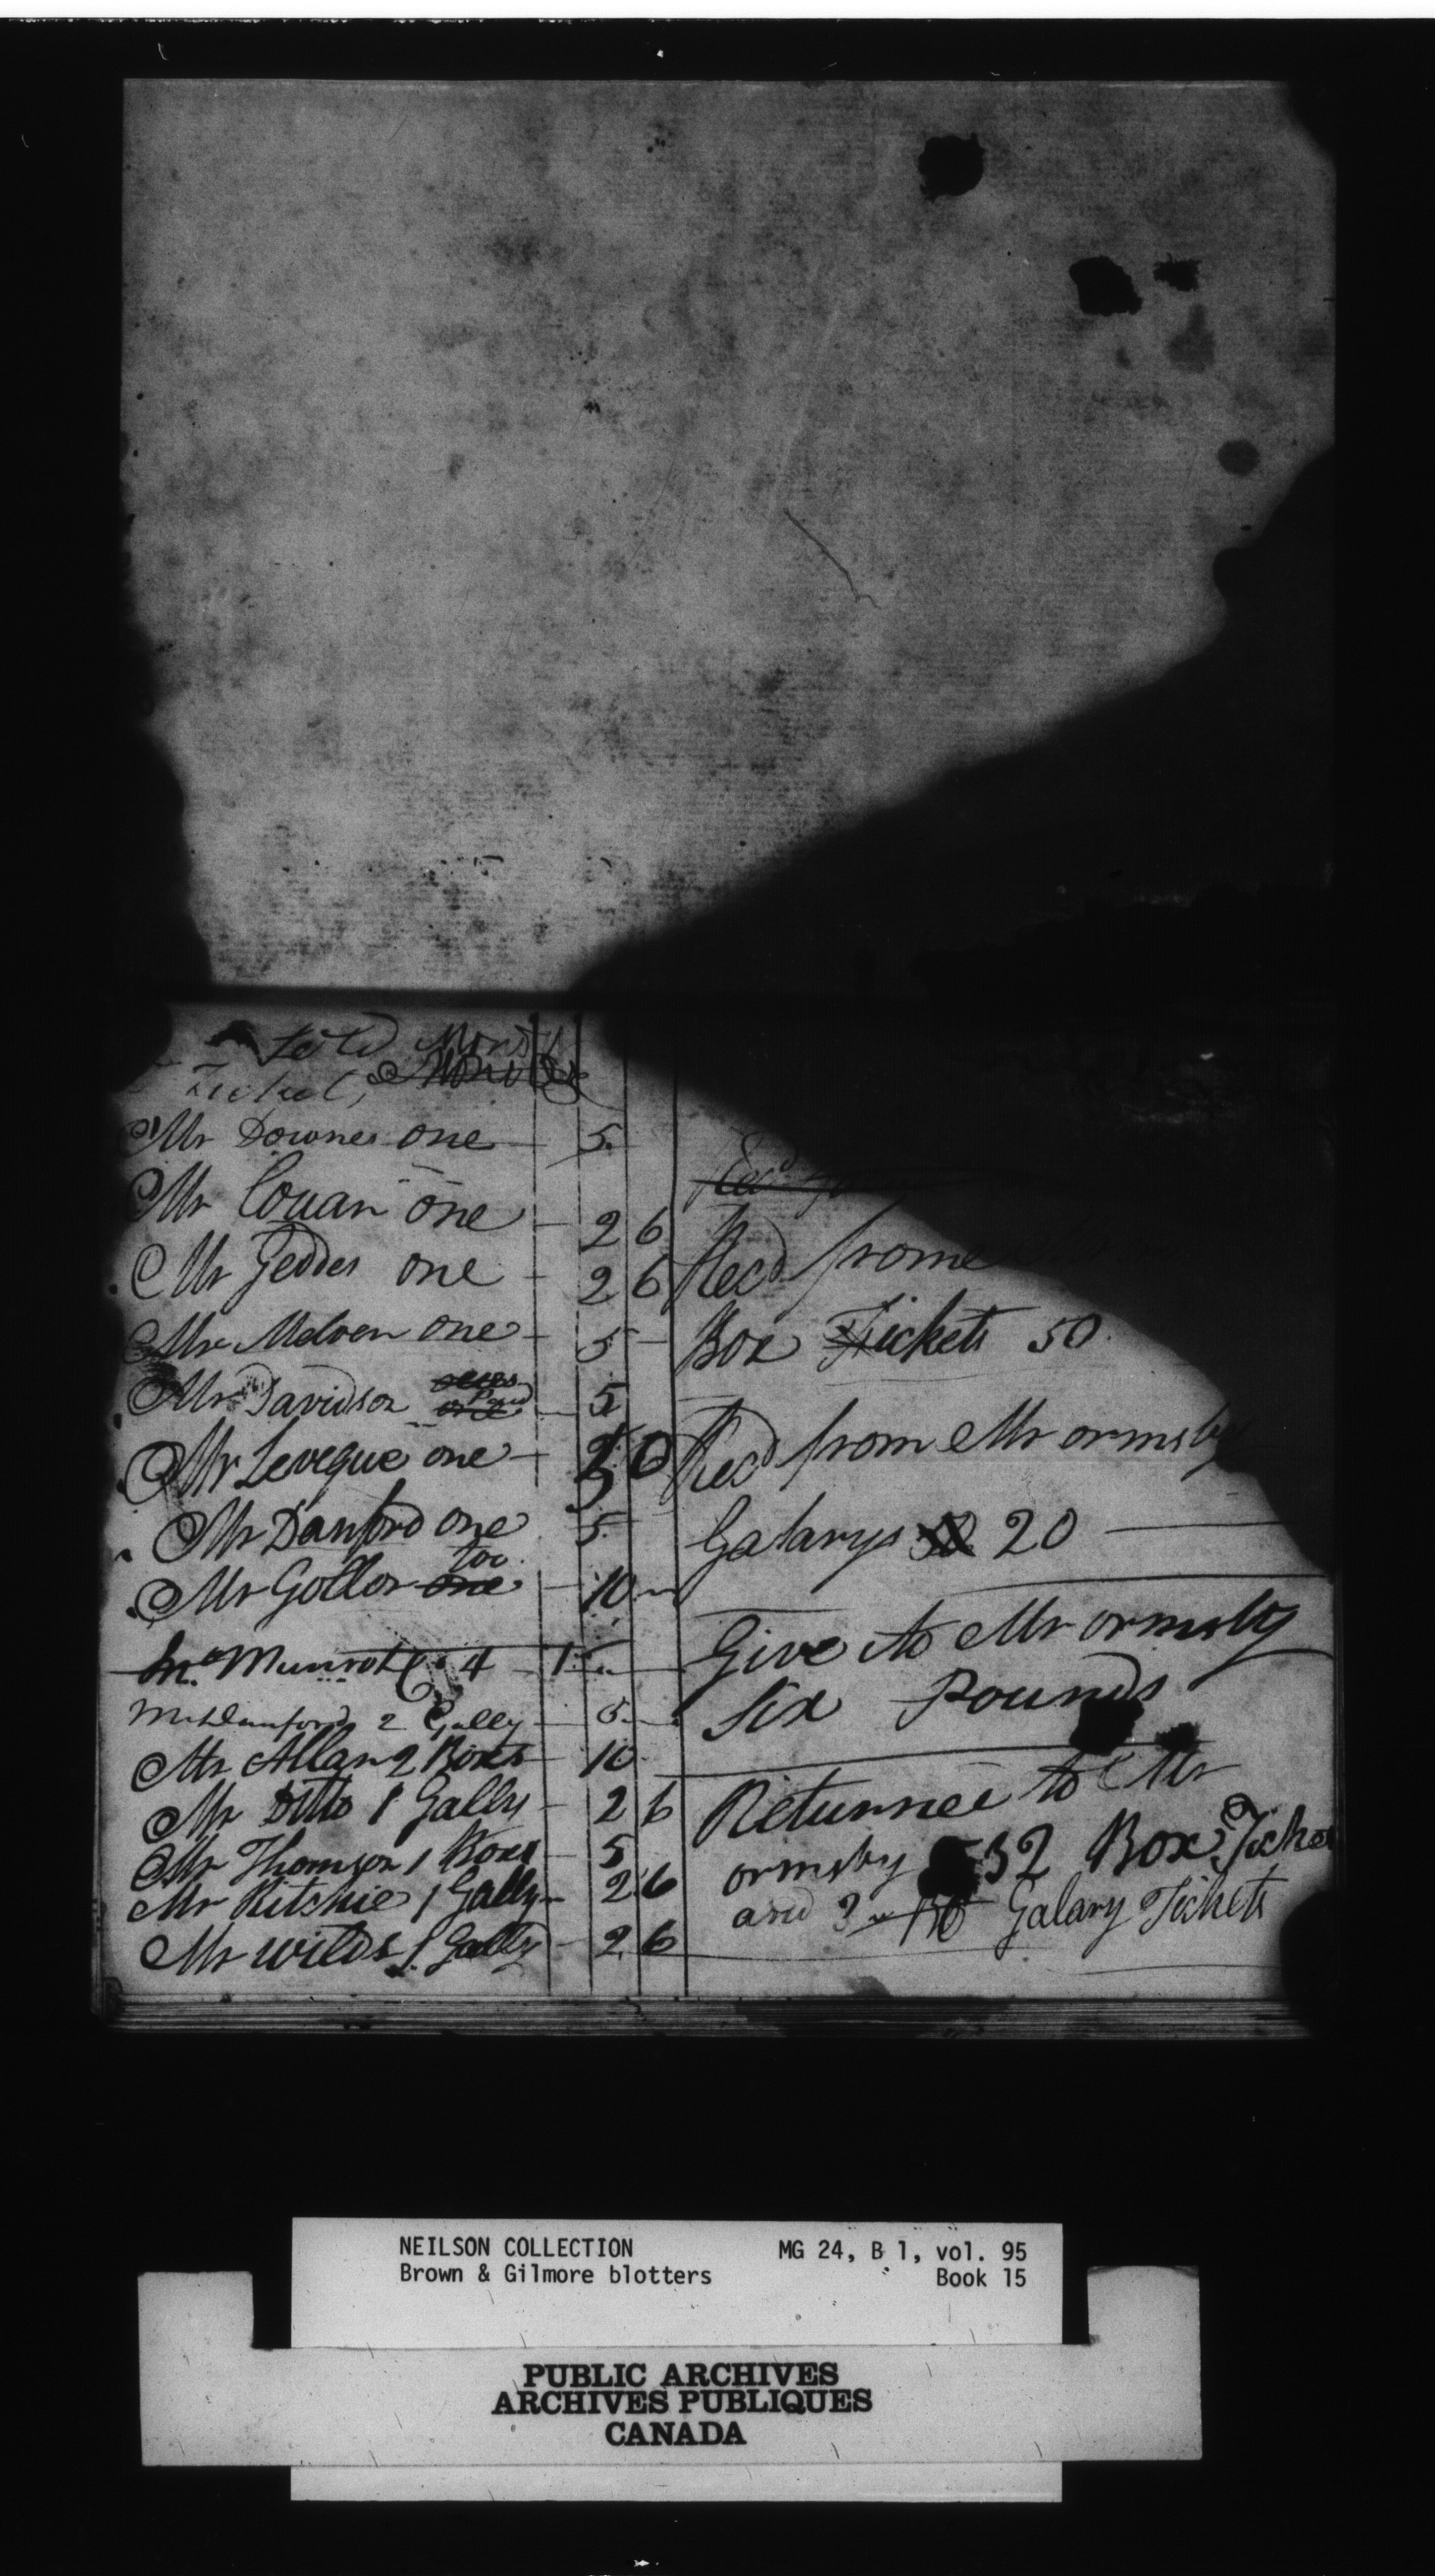 Sold
Ticket,
Mr Downes one 5
Mr Couan one 2 6
Mr Geddes one 2 6
Mr Melven one 5
Mr Davidson Paid 5
Mr Leveque one
Mr Danford one 5
Mr Gollor one too 10
Munro 4 1
Mr Danford 2 Gally 5
Mr Allan 2 Boxes 10
Mr Ditto 1 Gally 2 6
Mr Thomson 1 Boxe 5
Mr Ritshie 1 Gally 2 6
Mr wilds 1 Gally 2 6
Recd
Recd frome
Box Tickets 50
Recd from Mr ormsby
Galarys 20
Give to Mr ormsby
Six Pounds
Returnee to Mr
ormsby 32 Box Ticke
and 3 Galary Tickets
NEILSON COLLECTION MG 24, B 1, vol. 95
Brown & Gilmore blotters Book 15
PUBLIC ARCHIVES
ARCHIVES PUBLIQUES
CANADA